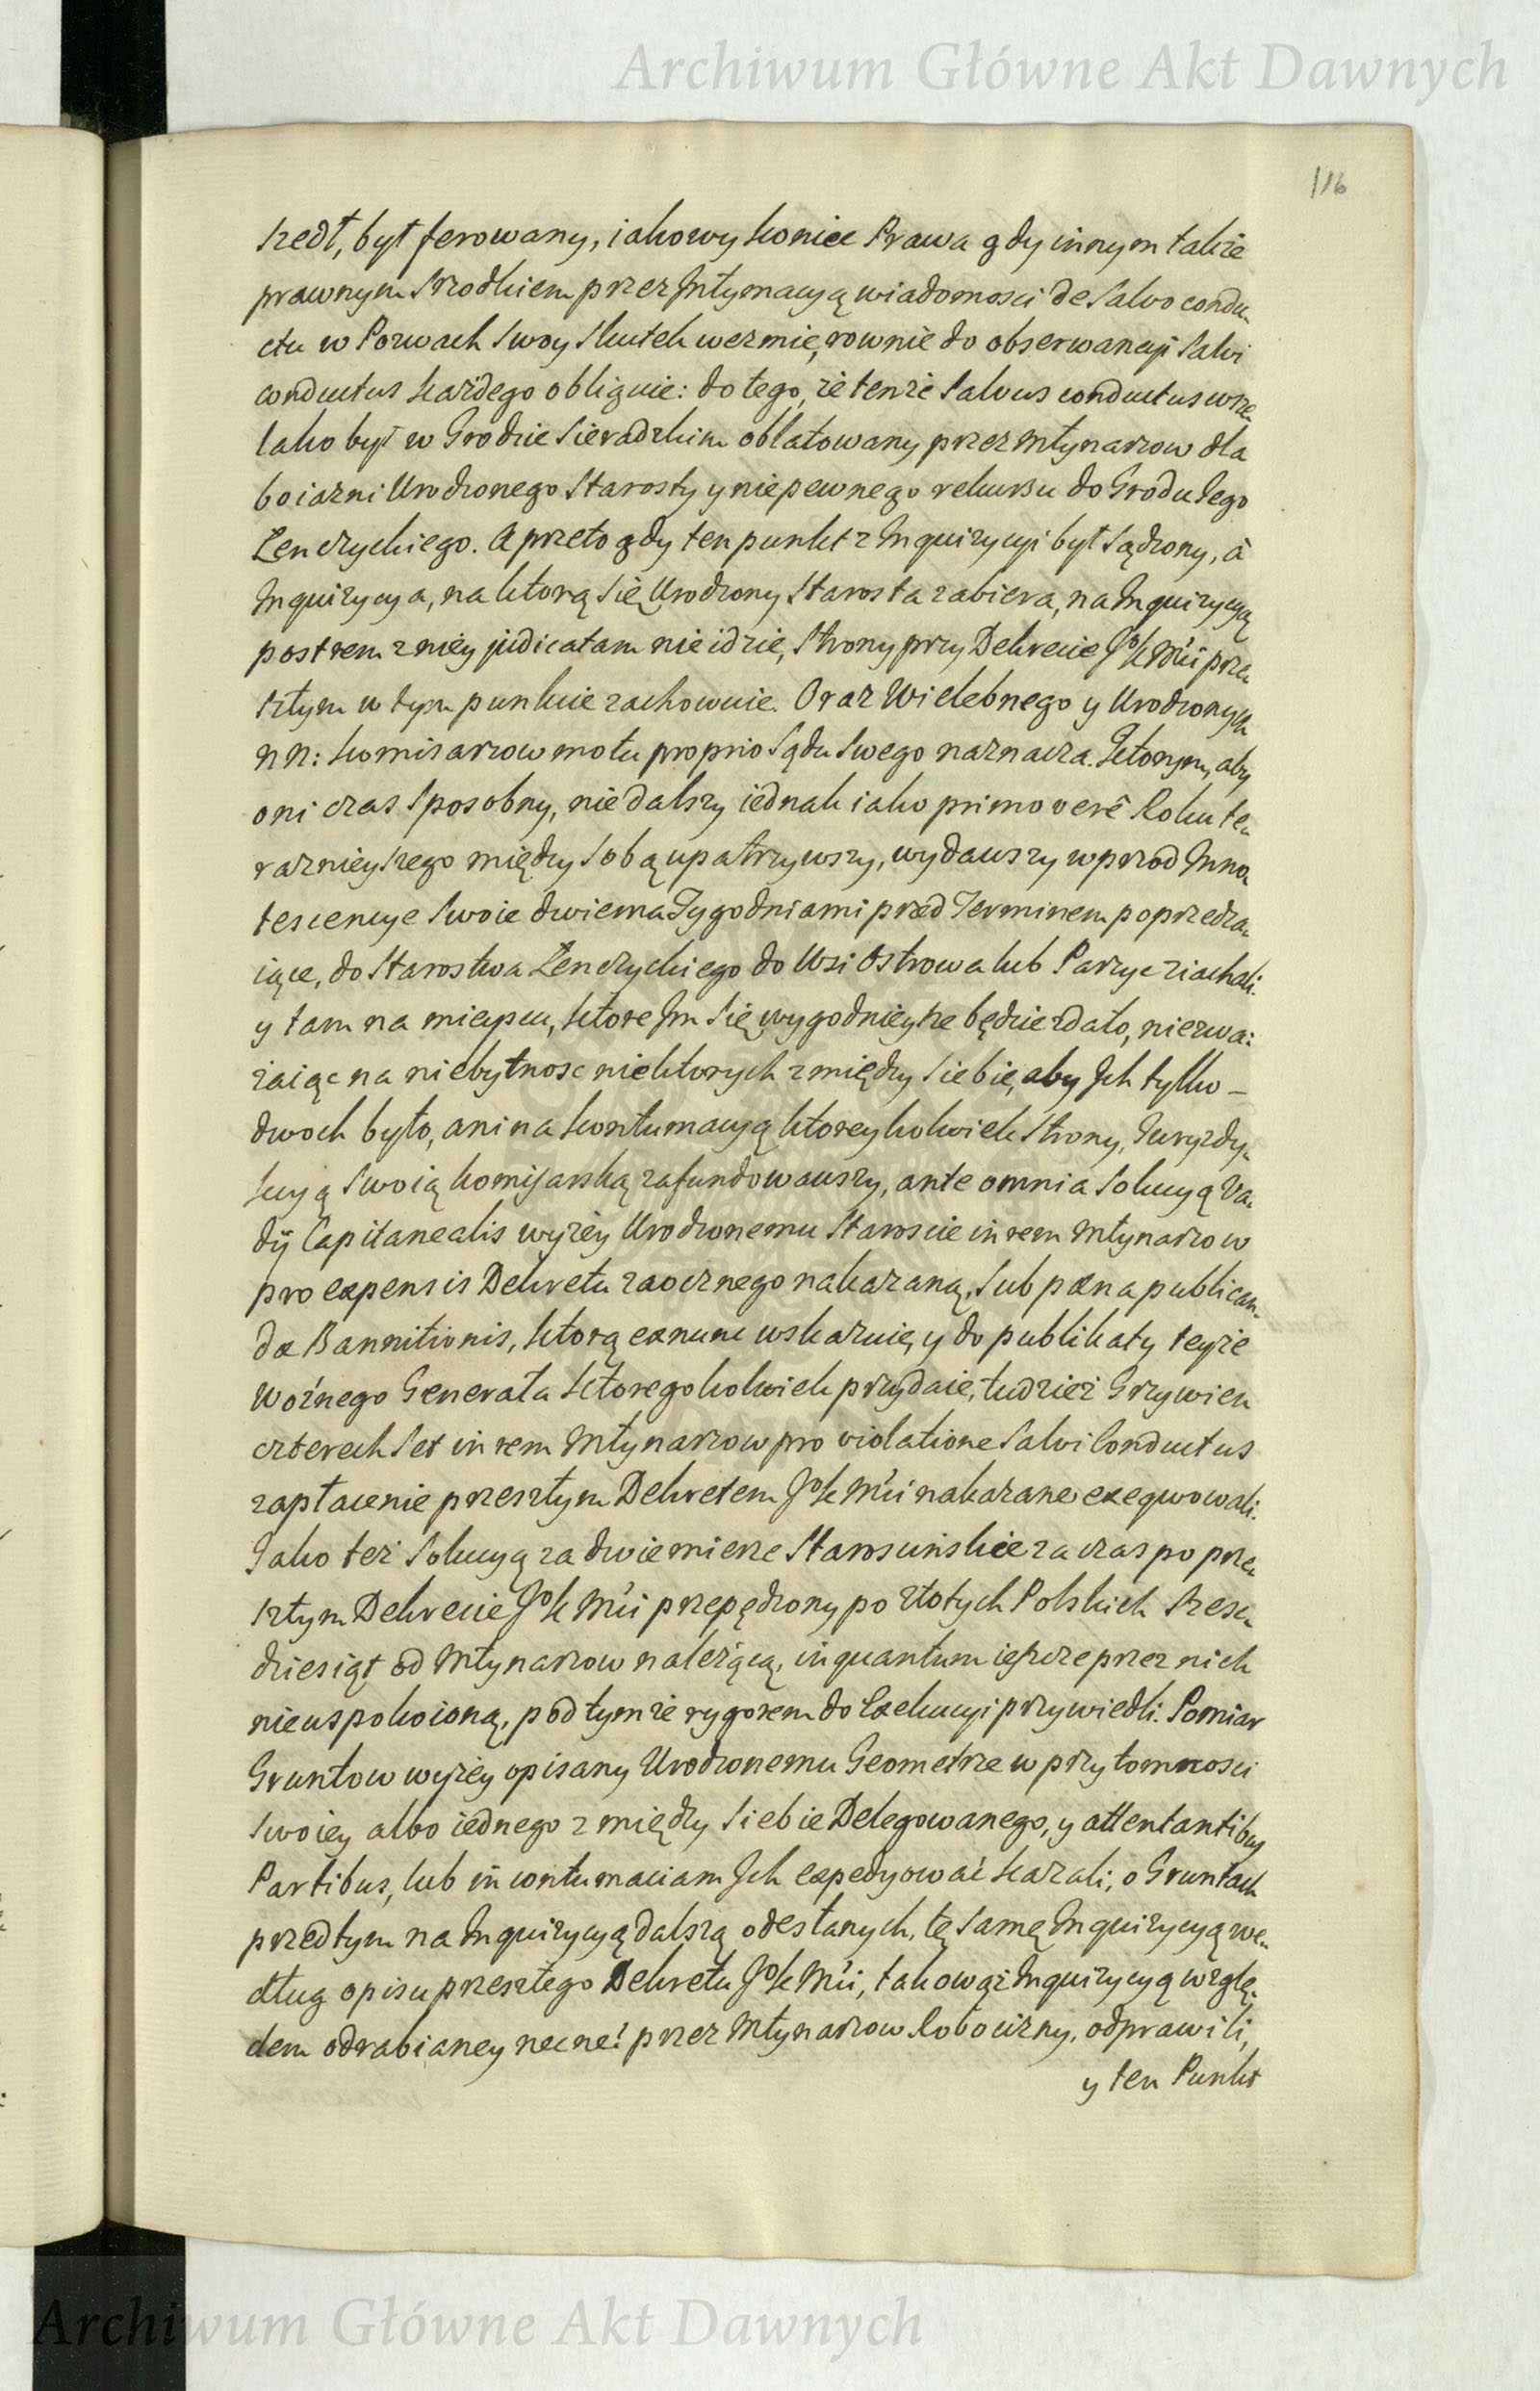 Archiwum Główne Akt Dawnych
116
szedł, był ferowany, iakowy koniec Prawa gdy innym także
prawnym srzodkiem przez Intymacyą wiadomosci de Salvo condu-
ctu w Pozwach swoy skutek wezmie, rownie do obserwancyi Salvi
conductus każdego obliguie: do tego, że tenże Salvus conductus wsze-
lako był w Grodzie Sieradzkim oblatowany przez Młynarzow dla
boiazni Urodzonego Starosty y niepewnego rekursu do Grodu Jego
Łenczyckiego. A przeto gdy ten punkt z Inquizycyi był sądzony, à
Inquizycya, na ktorą się Urodzony Starosta zabiera, na Inquizycyą
postrem z niey judicatam nie idzie, Strony przy Dekrecie JoKMci prze-
szłym w tym punkcie zachowuie. Oraz Wielebnego y Urodzonych
NN: Komisarzow motu proprio Sądu Swego naznacza. Ktorym, aby
oni czas sposobny, nie dalszy iednak iako primo verê Roku te-
raznieyszego między sobą upatrzywszy, wydawszy wprzod Inno-
tescencye swoie dwiema Tygodniami przed Terminem poprzedza-
iące, do Starostwa Łenczyckiego do Wsi Ostrowa lub Parzyc ziachali.
y tam na mieyscu, ktore Im się wygodnieysze będzie zdało, niezwa-
żaiąc na niebytnosc niektorych z między siebie, aby Ich tylko –
dwoch było, ani na kontumacyą ktoreykolwiek Strony, Juryzdy-
kcyą swoią komisarską zafundowawszy, ante omnia Solucyą Va-
dij Capitanealis wyżey Urodzonemu Staroscie in rem Młynarzow
pro expensis Dekretu zaocznego nakazaną, sub pæna publican-
dæ Bannitionis, ktorą exnunc wskazuie, y do publikaty teyże
Woźnego Generała ktoregokolwiek przydaie, tudzież Grzywien
czterech set in rem Młynarzow pro violatione Salvi Conductus
zapłacenie przeszłym Dekretem JoKMci nakazane exeqwowali.
Jako też Solucyą za dwie mierze Staroscinskie za czas po prze-
szłym Dekrecie JoKMci przepędzony po złotych Polskich szesc-
dziesiąt od Młynarzow należącą, inquantum ieszcze przez nich
nieuspokoioną, pod tymże rygorem do Exekucyi przywiedli. Pomiar
Gruntow wyżey opisany Urodzonemu Geometrze w przytomnosci
swoiey albo iednego z między siebie Delegowanego, y attentantibus
Partibus, lub in contumaciam Ich expedyować kazali, o Gruntach
przedtym na Inquizycyą dalszą odesłanych, tę samę Inquizycyą we-
dług opisu przeszłego Dekretu JoKMci, takowąż Inquizycyą wzglę-
dem odrabianey necne? przez Młynarzow Robocizny, odprawili,
y ten Punkt
Archiwum Główne Akt Dawnych